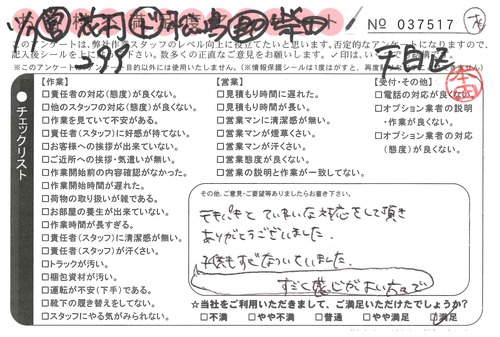 № 037517
このアンケートは、弊社作業スタッフのレベル向上に役立てたいと思います。否定的なアンケートになりますので、
記入後シールを
✓印は、
※(このアンケート
目的以外には使用いたしません。)(※情報保護シールは1度はがすと、再度
チェックリスト
【作業】
□責任者の対応(態度)が良くない。
□他のスタッフの対応(態度)が良くない。
□作業を見ていて不安がある。
□責任者(スタッフ)に好感が持てない。
□お客様への挨拶が出来ていない。
□ご近所への挨拶・気遣いが無い。
□作業開始前の内容確認がなかった。
□作業開始時間が遅れた。
□荷物の取り扱いが雑である。
□お部屋の養生が出来ていない。
□作業時間が長すぎる。
□責任者(スタッフ)に清潔感が無い。
□責任者(スタッフ)が汗くさい。
□トラックが汚い。
□梱包資材が汚い。
□運転が不安(下手)である。
□靴下の履き替えをしてない。
□スタッフにやる気がみられない。
【営業】
□見積もり時間に遅れた。
□見積もり時間が長い。
□営業マンに清潔感が無い。
□営業マンが煙草くさい。
□営業マンが汗くさい。
□営業態度が良くない。
□営業の説明と作業が一致してない。
【受付・その他】
□電話の対応が良くない。
□オプション業者の説明
・作業が良くない。
□オプション業者の対応
(態度)が良くない。
その他、ご意見・ご要望等ありましたらお書き下さい。
てきぱきと ていねいな対応をして頂き
ありがとうございました。
子供もすごくなついていました。
すごく感じがよい方で
☆当社をご利用いただきまして、ご満足いただけたでしょうか?
□不満 □やや不満 □普通 □やや満足 □満足